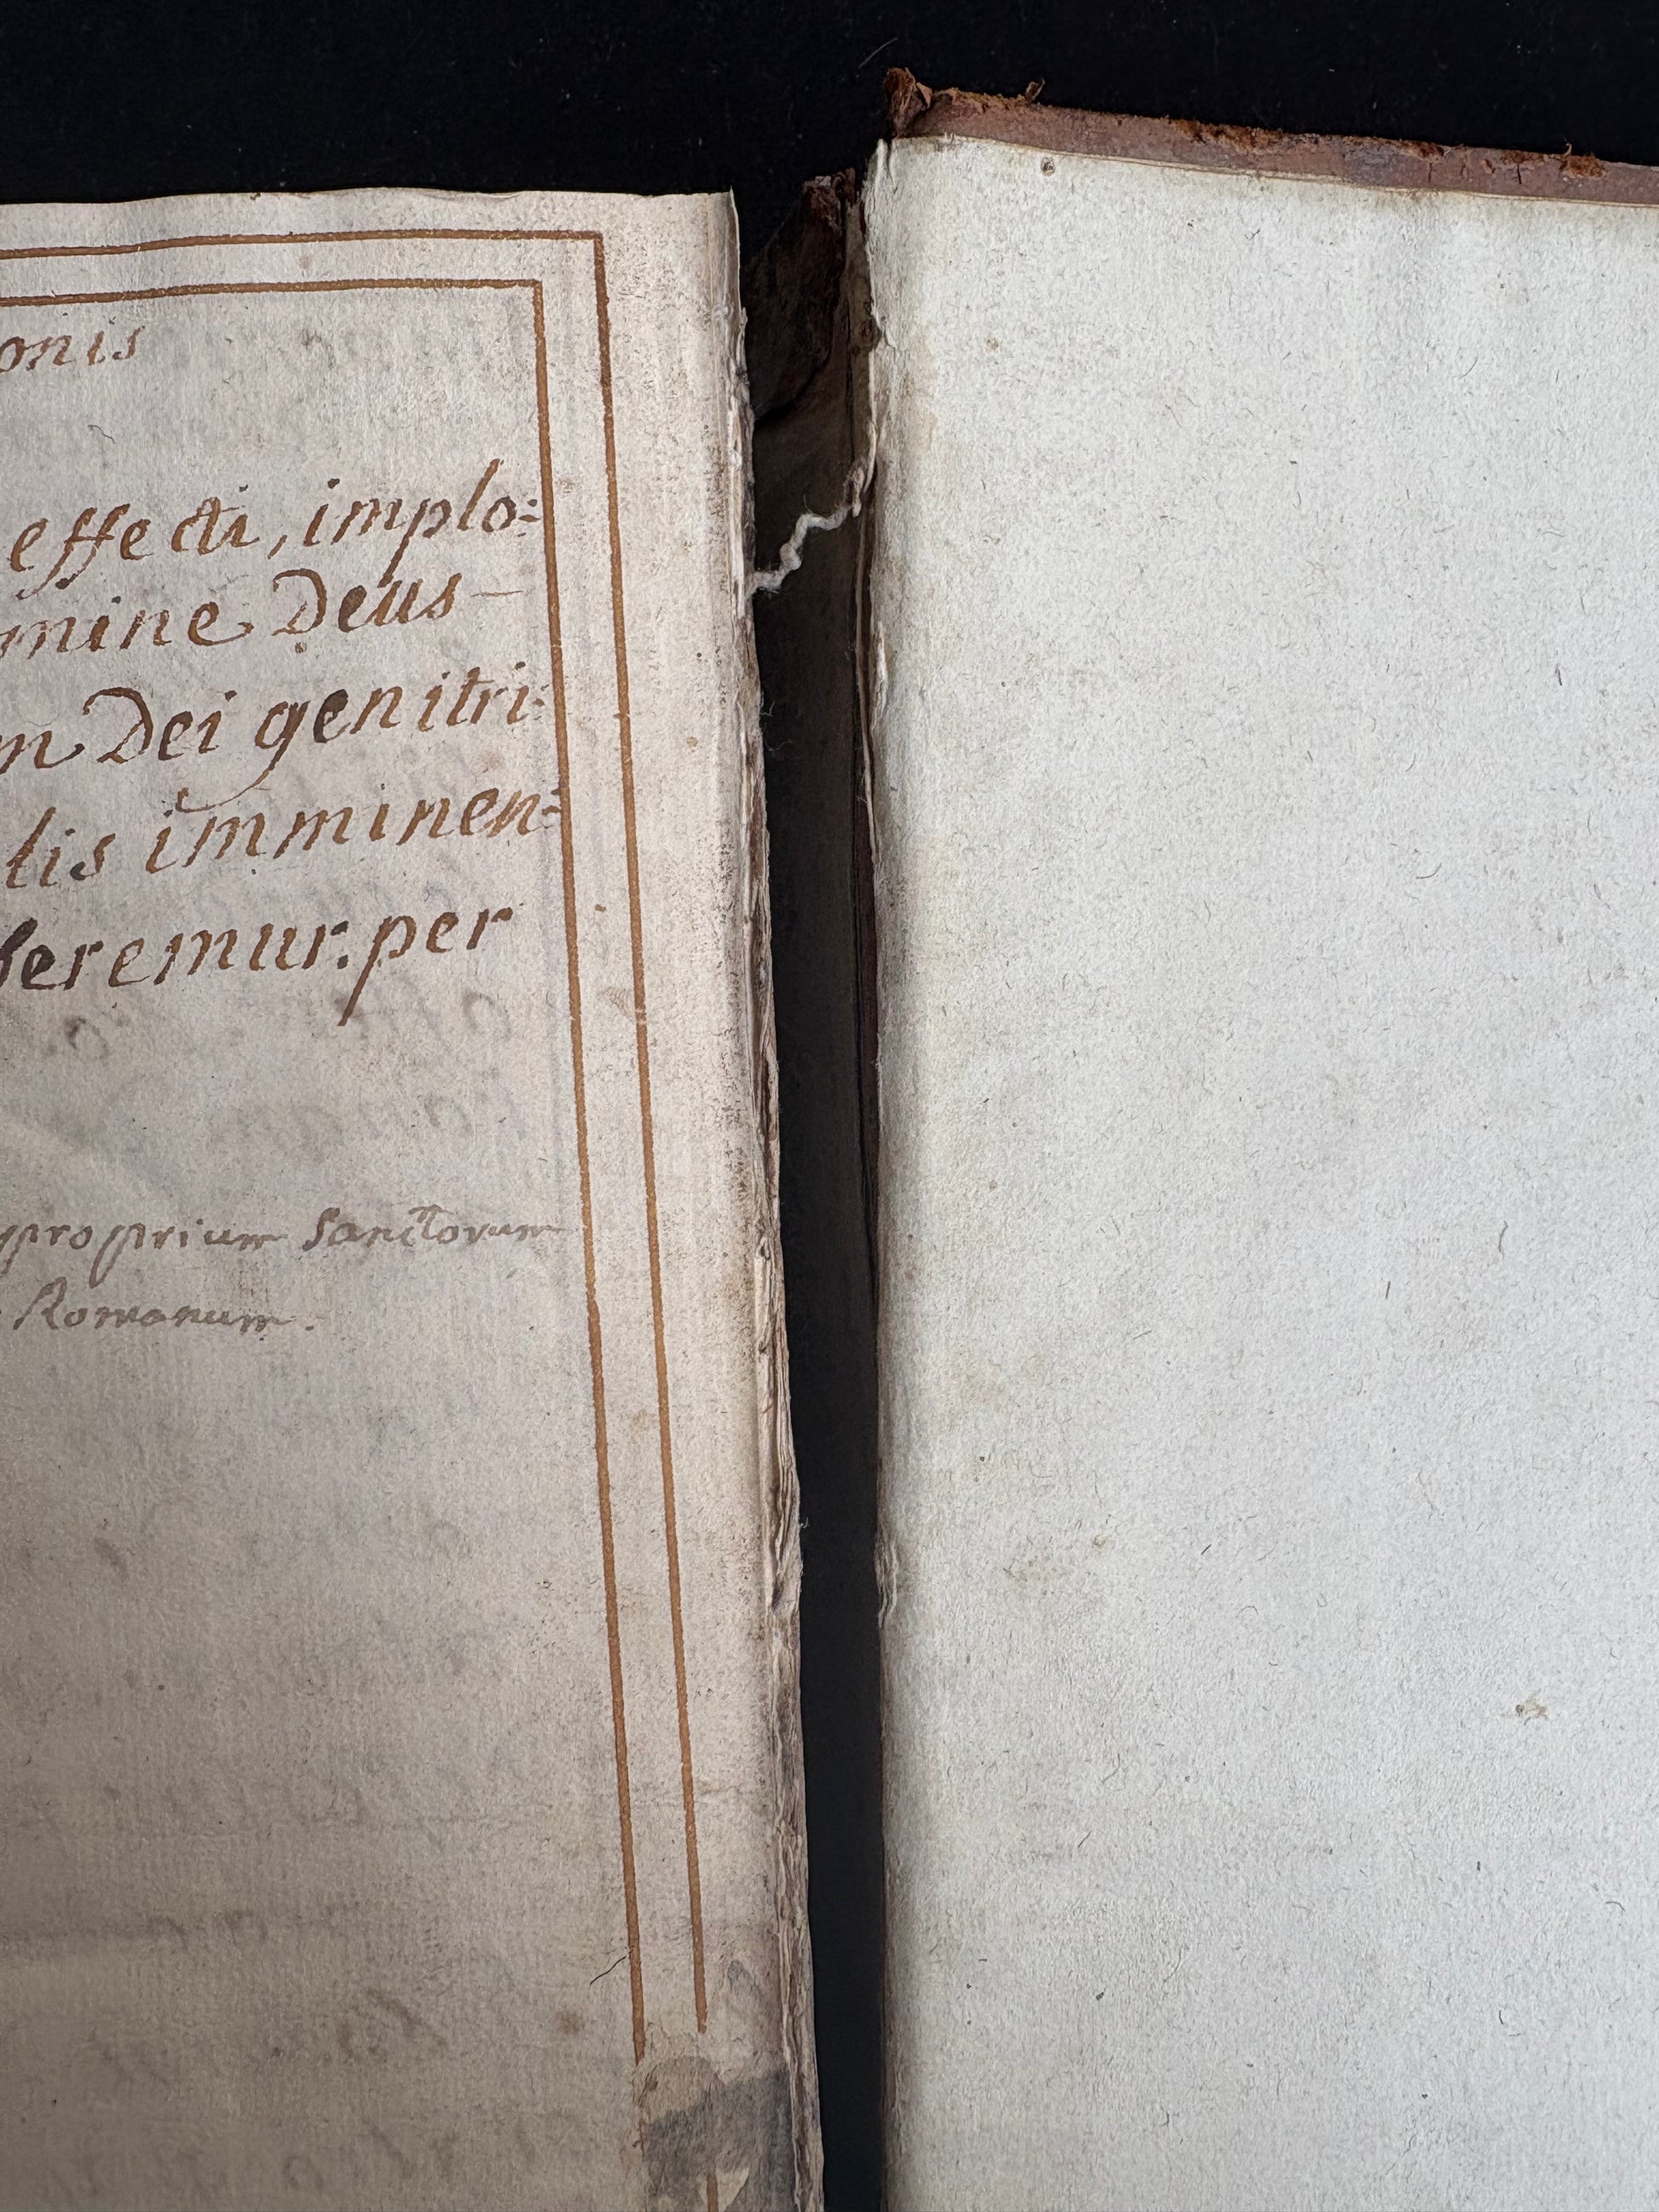 onis
effecti, implo:
mine Deus
m Dei genitri:
tis imminen:
leremur. per
proprium Sanctorum
Romanum.